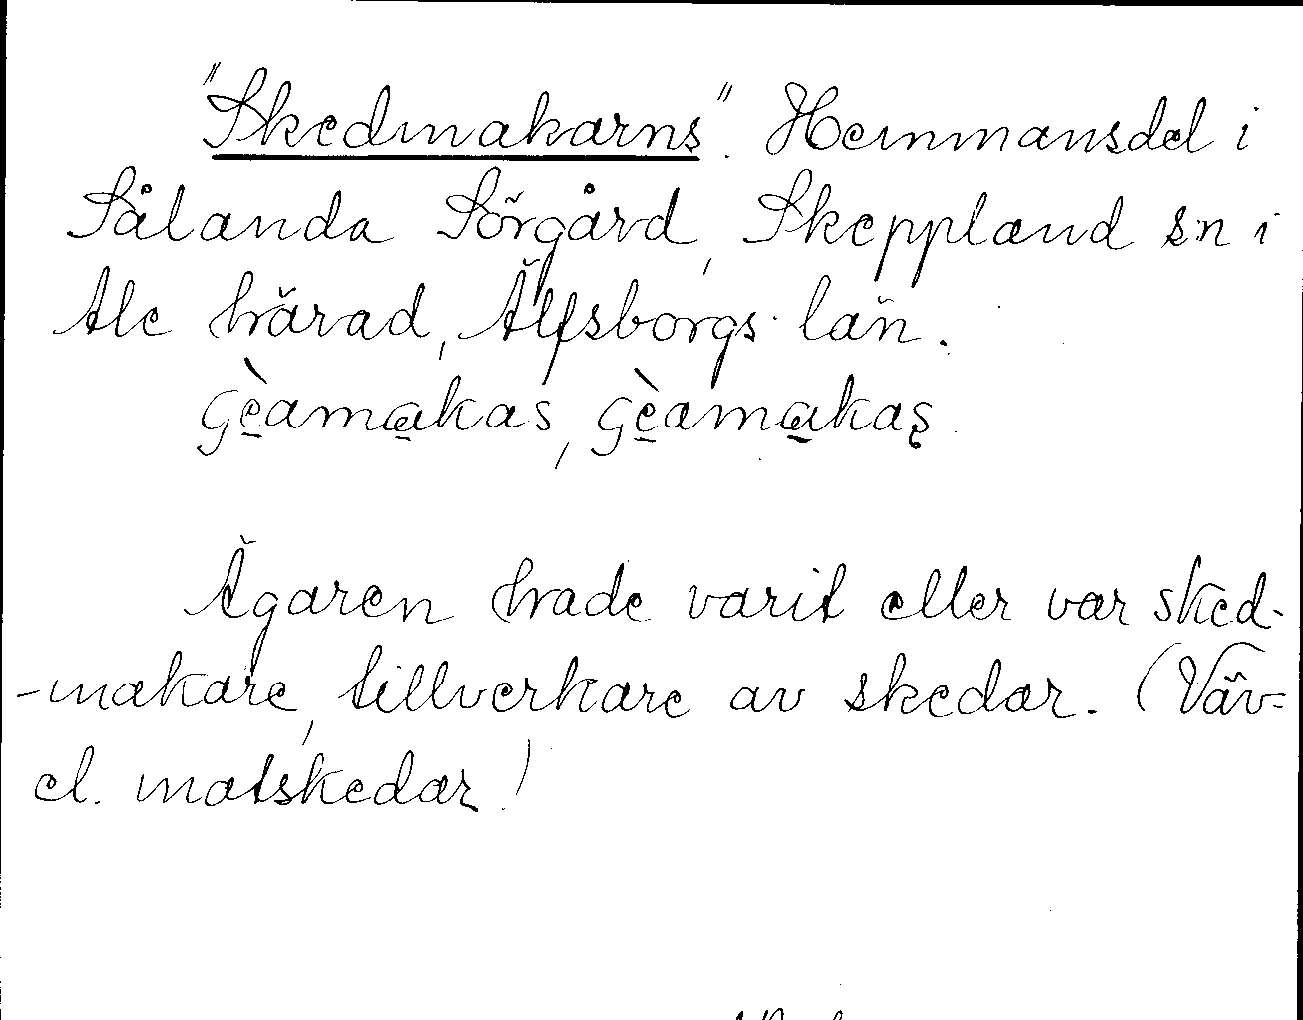 "Skedmakarns". Hemmansdel i
Sålanda Sörgård, Skeppland sn i
Ale härad, Älfsborgs län.
gèamakas, gèamakaș
Ägaren hade varit eller var sked-
-makare, tillverkare av skedar. (Väv-
el. matskedar!)